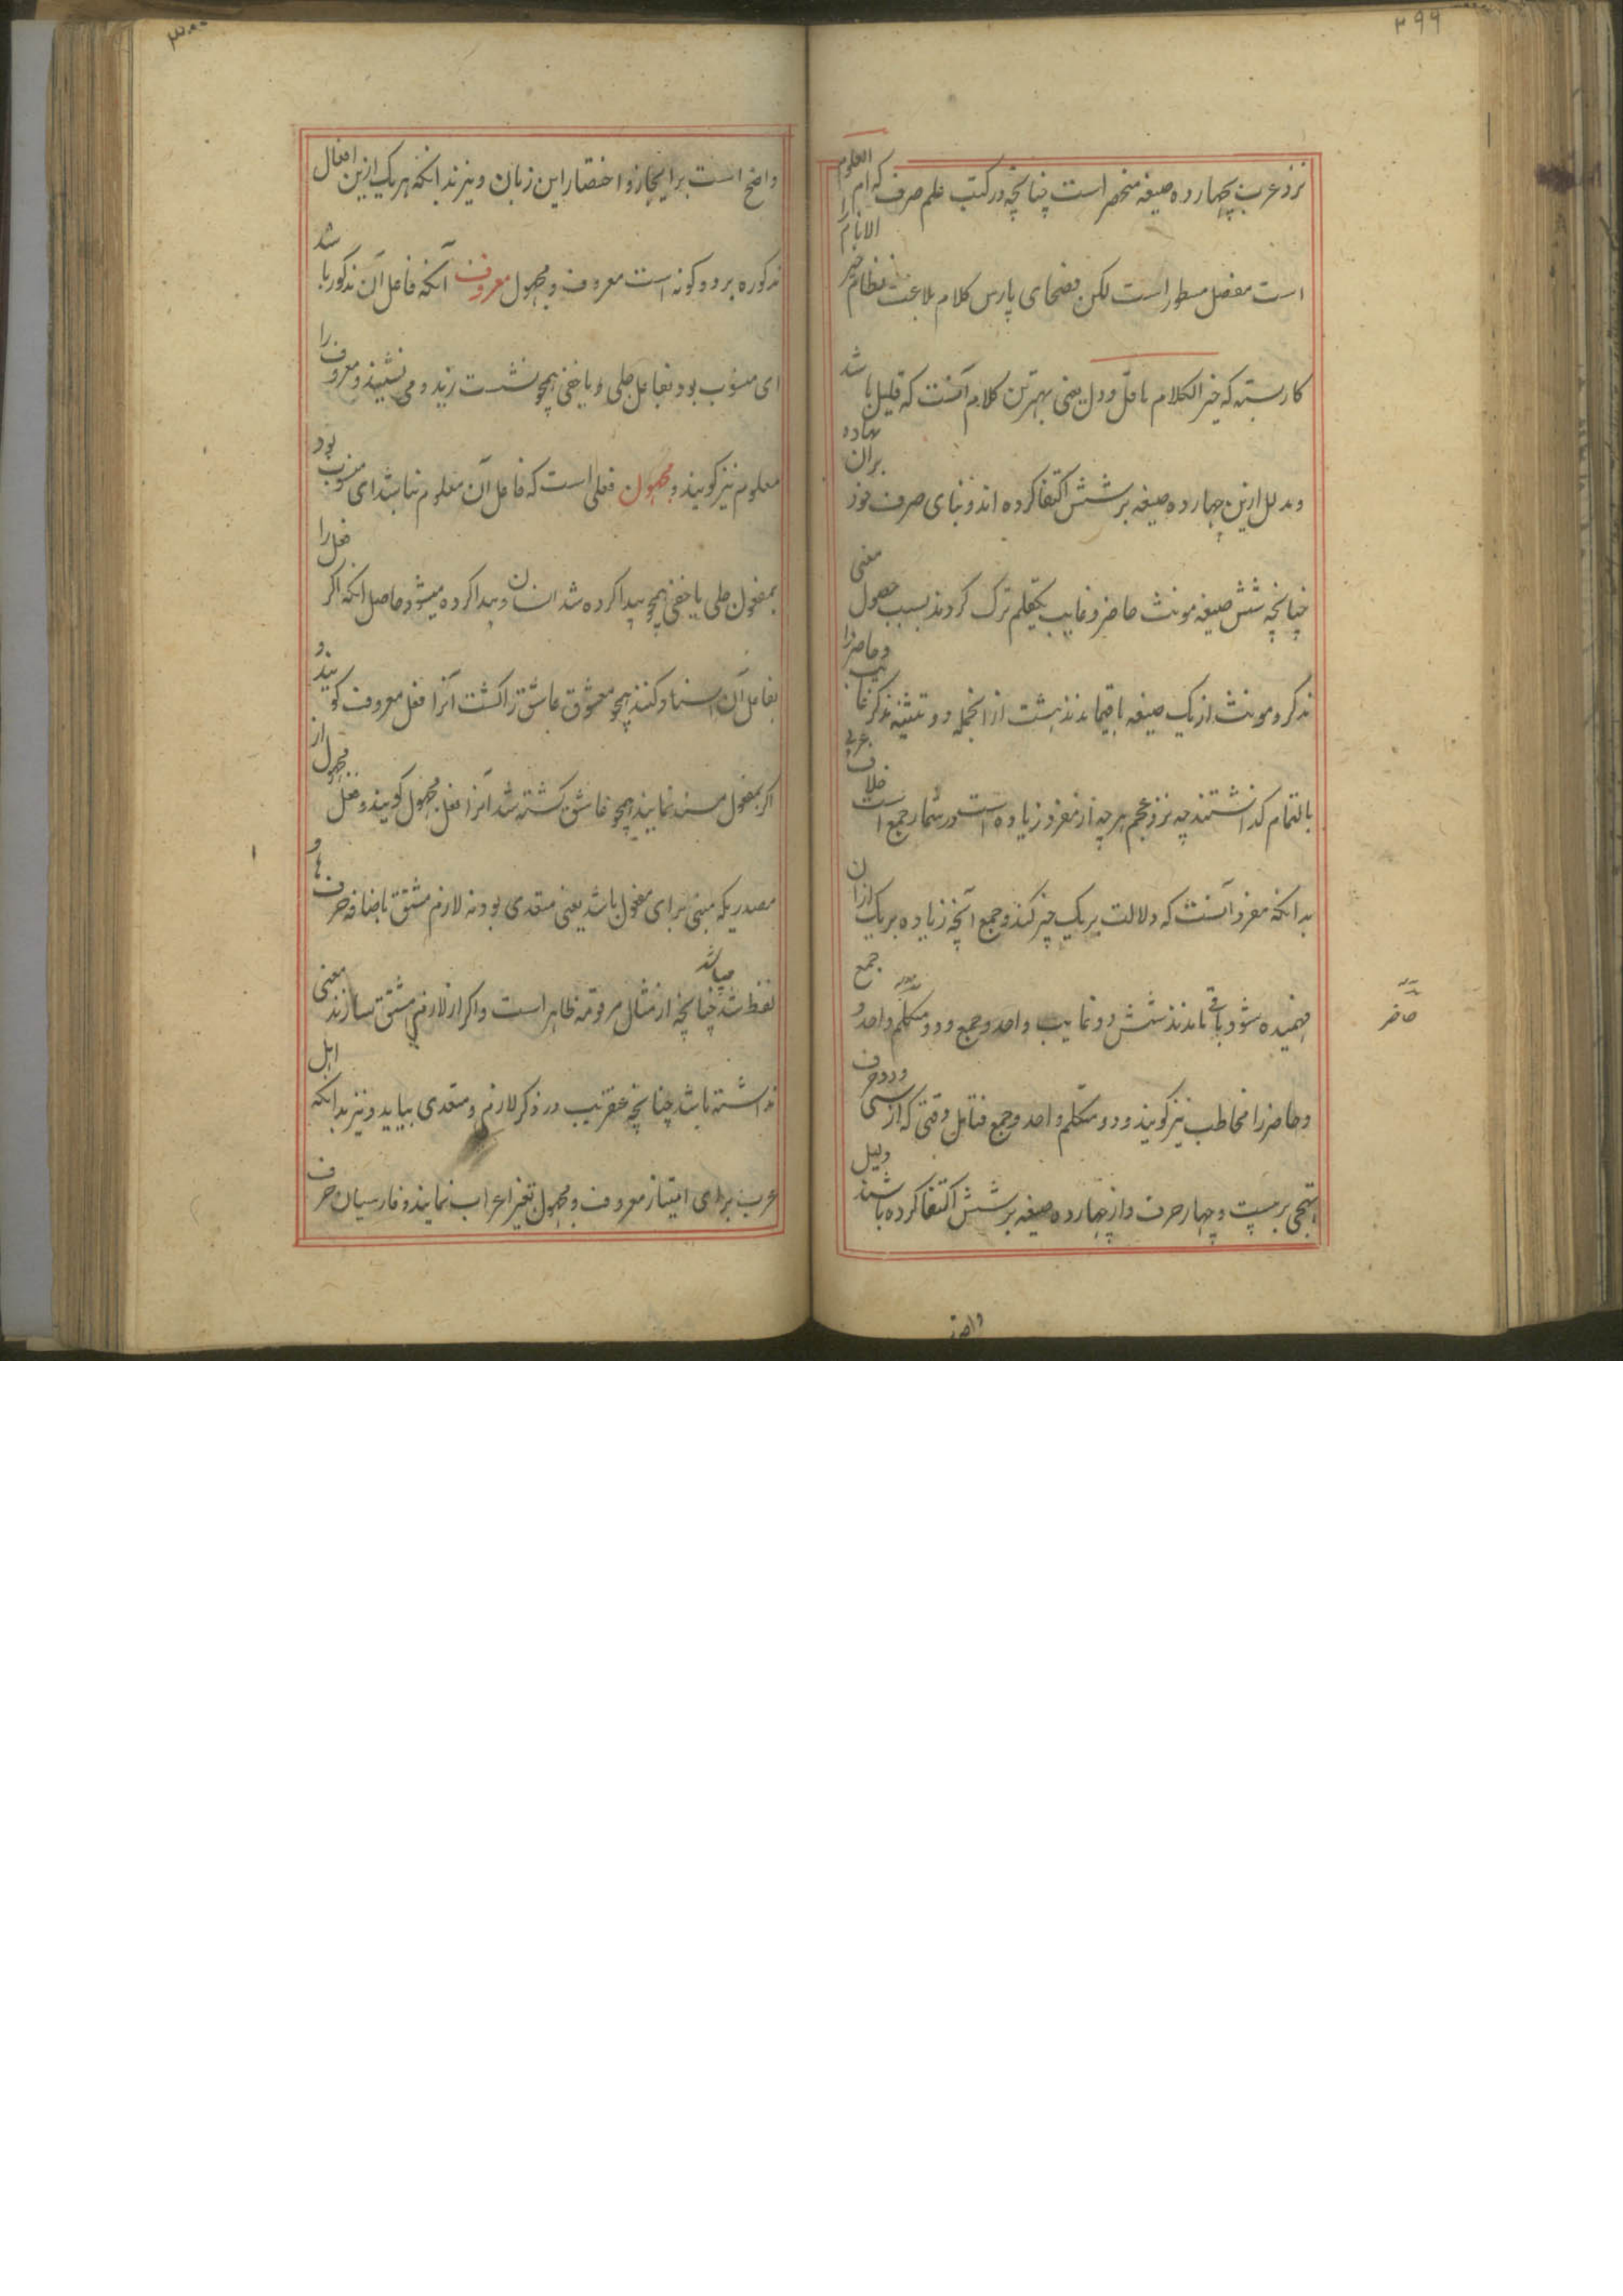 ۲۹۹
نزد عرب بچهارده صیغه منحصر است چنانچه در کتب علم صرف که ام العلوم
است مفصل مسطور است لکن فصحای پارس کلام بلاغت نظام خیر الانام را
کار بسته که خیر الکلام ما قل و دل یعنی بهترین کلام آنست که قلیل باشد
و مدلل ازین چهارده صیغه بر شش اکتفا کرده اند و بنای صرف خود بران نهاده
چنانچه شش صیغه مونث حاضر و غایب یکقلم ترک کردند بسبب حصول معنی
مذکر و مونث از یک صیغه باقیماندند هشت ازانجمله دو تثنیه مذکر غایب و حاضر را
بالتمام گذاشتند چه نزد عجم هر چه از مفرد زیاده است در شمار جمع است خلاف عربی
بدانکه مفرد آنست که دلالت بر یک چیز کند و جمع آنچه زیاده بر یک ازان
فهمیده شود باقی ماندند شش دو غایب واحد و جمع و دو متکلم واحد و جمع
حاضر
و حاضر را مخاطب نیز گویند و دو متکلم واحد و جمع فتامل وقتی که از سی و دو حرف
تهجی بر بیست و چهار حرف و از چهارده صیغه بر شش اکتفا کرده باشند دلیل
واضح
۳۰۰
واضح است بر ایجاز و اختصار این زبان و نیز بدانکه هر یک ازین افعال
مذکوره بر دو گونه است معروف و مجهول معروف آنکه فاعل آن مذکور باشد
ای منسوب بود بفاعل جلی و یا خفی همچو نشست زید و می نشیند و معروف را
معلوم نیز گویند و مجهول فعلی است که فاعل آن معلوم نباشد ای منسوب بود
بمفعول جلی یا خفی همچو پیدا کرده شد انسان و پیدا کرده میشود حاصل آنکه اگر فعل را
بفاعل آن اسناد کنند همچو معشوق عاشق را کشت آنرا فعل معروف گویند و
اگر بمفعول مسند نمایند همچو عاشق کشته شد آنرا فعل مجهول گویند و فعل مجهول از
مصدریکه مبنی برای مفعول باشد یعنی متعدی بود نه لازم مشتق باضافه حرف ها و
لفظ شد میباشد چنانچه از مثال مرقومه ظاهر است و اگر از لازم مشتق سازند معنی
نداشته باشد چنانچه عنقریب در ذکر لازم و متعدی بیاید و نیز بدانکه اهل
عرب برای امتیاز معروف و مجهول تغیر اعراب نمایند و فارسیان حرف